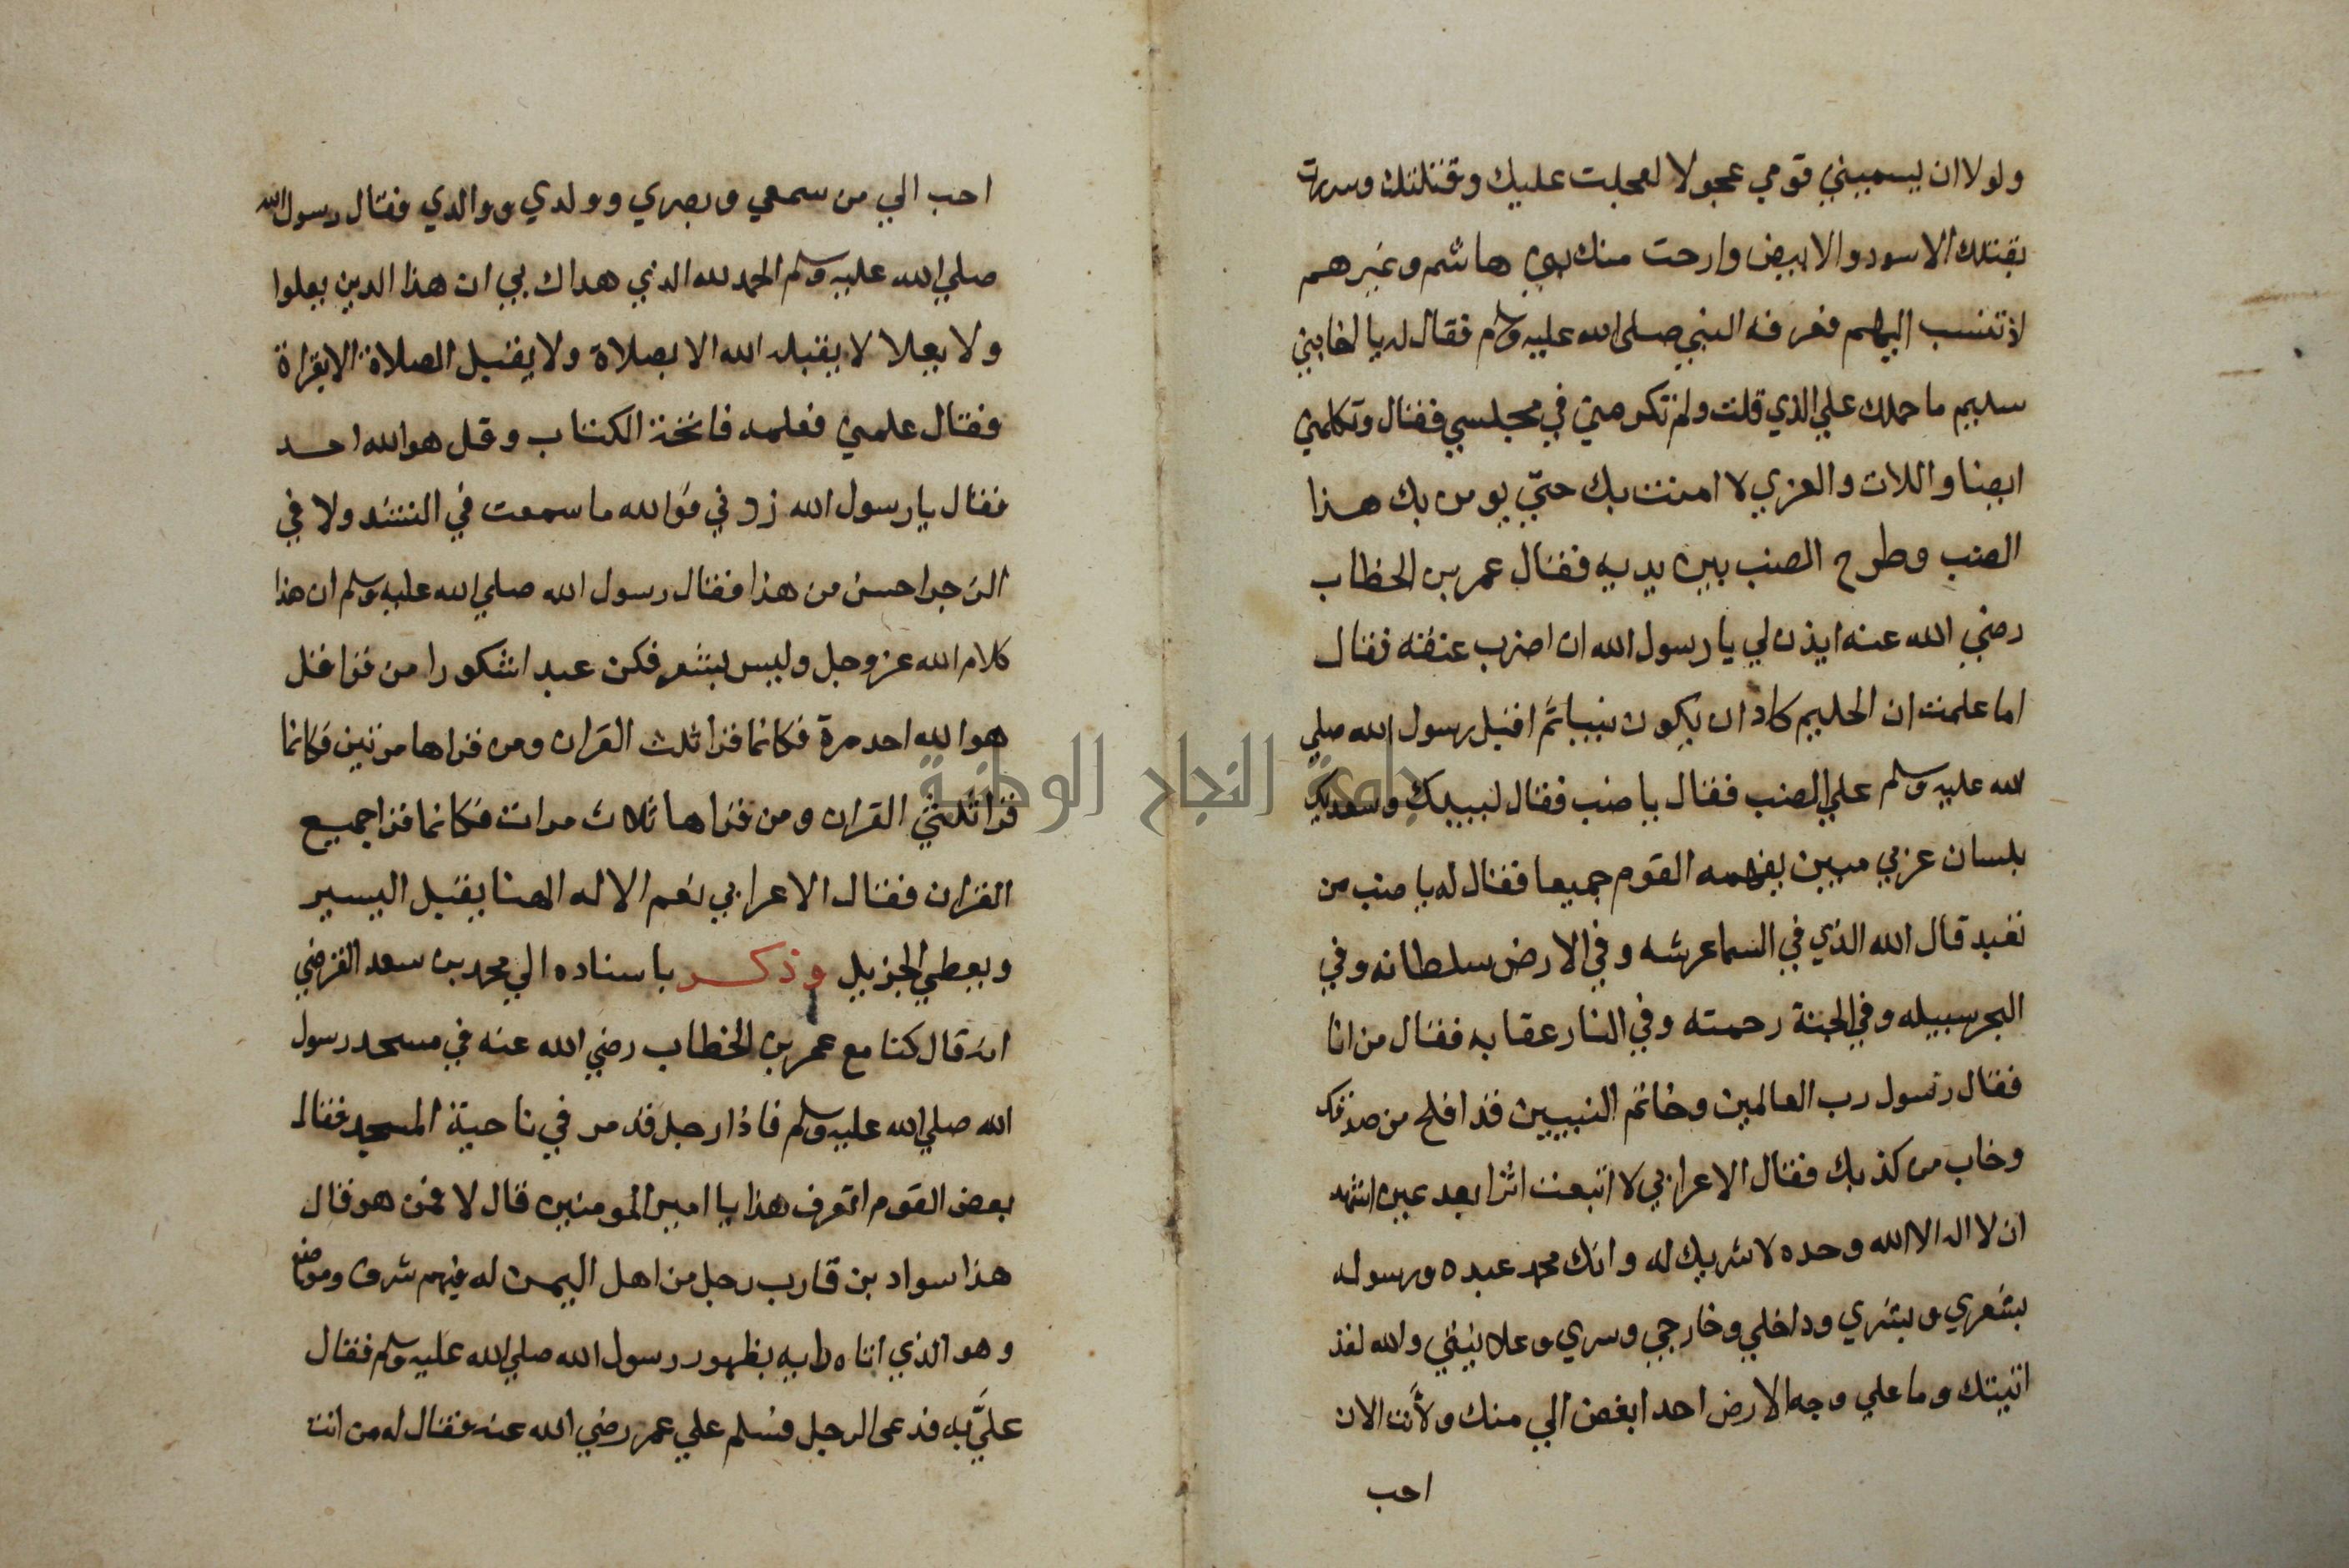 ولولا ان يسميني قومي عجولا لعجلت عليك وقتلتك وسررت
بقتلك الاسود والابيض وارحت منك بني هاشم وغيرهم
اذ تنسب اليهم فعرفه النبي صلى الله عليه وسلم فقال له يا اخا بني
سليم ما حملك علي الذي قلت ولم تكرمني في مجلسي فقال وتكلمني
ايضا واللات والعزي لا امنت بك حتي يومن بك هذا
الضب وطرح الضب بين يديه فقال عمر بن الخطاب
رضي الله عنه ايذن لي يا رسول الله ان اضرب عنقه فقال
اما علمت ان الحليم كاد ان يكون نبيا ثم اقبل رسول الله صلي
الله عليه وسلم علي الضب فقال يا ضب فقال لبيك وسعديك
بلسان عربي مبين يفهمه القوم جميعا فقال له يا ضب من
تعبد قال الله الذي في السما عرشه وفي الارض سلطانه وفي
البحر سبيله وفي الجنة رحمته وفي النار عقابه فقال من انا
فقال رسول رب العالمين وخاتم النبيين قد افلح من صدقك
وخاب من كذبك فقال الاعرابي لا اتبعت اثرا بعد عين اشهد
ان لا اله الا الله وحده لا شريك له وانك محمد عبده ورسوله
بشعري وبشري وداخلي وخارجي وسري وعلانيتي والله لقد
اتيتك وما علي وجه الارض احد ابغض الي منك ولأنت الان
احب
احب الي من سمعي وبصري وولدي ووالدي فقال رسول الله
صلي الله عليه وسلم الحمد لله الذي هداك بي ان هذا الدين يعلوا
ولا يعلا لا يقبله الله الا بصلاة ولا يقبل الصلاة الا بقراة
فقال علمني فعلمه فاتحة الكتاب وقل هو الله احد
فقال يا رسول الله زدني فوالله ما سمعت في ولا في
احسن من هذا فقال رسول الله صلي الله عليه وسلم ان هذا
كلام الله عز وجل وليس بشعر فكن عبدا شكورا من قرا قل
هو الله احد مرة فكانما قرا ثلث القران ومن قراها مرتين فكانما
قرا ثلثي القران ومن قراها ثلاث مرات فكانما قرا جميع
القران فقال الاعرابي نعم الاله الهنا يقبل اليسير
ويعطي الجزيل وذكر باسناده الي محمد بن سعد القرضي
انه قال كنا مع عمر بن الخطاب رضي الله عنه في مسجد رسول
الله صلي الله عليه وسلم فاذا رجل قد مر في ناحية المسجد فقال
بعض القوم اتعرف هذا يا امير المومنين قال لا فمن هو قال
هذا سواد بن قارب رجل من اهل اليمن له فيهم شرف وموضع
وهو الذي اتاه بظهور رسول الله صلي الله عليه وسلم فقال
عليَّ به فدعى الرجل فسلم علي عمر رضي الله عنه فقال له من انت
جامعة النجاح الوطنية